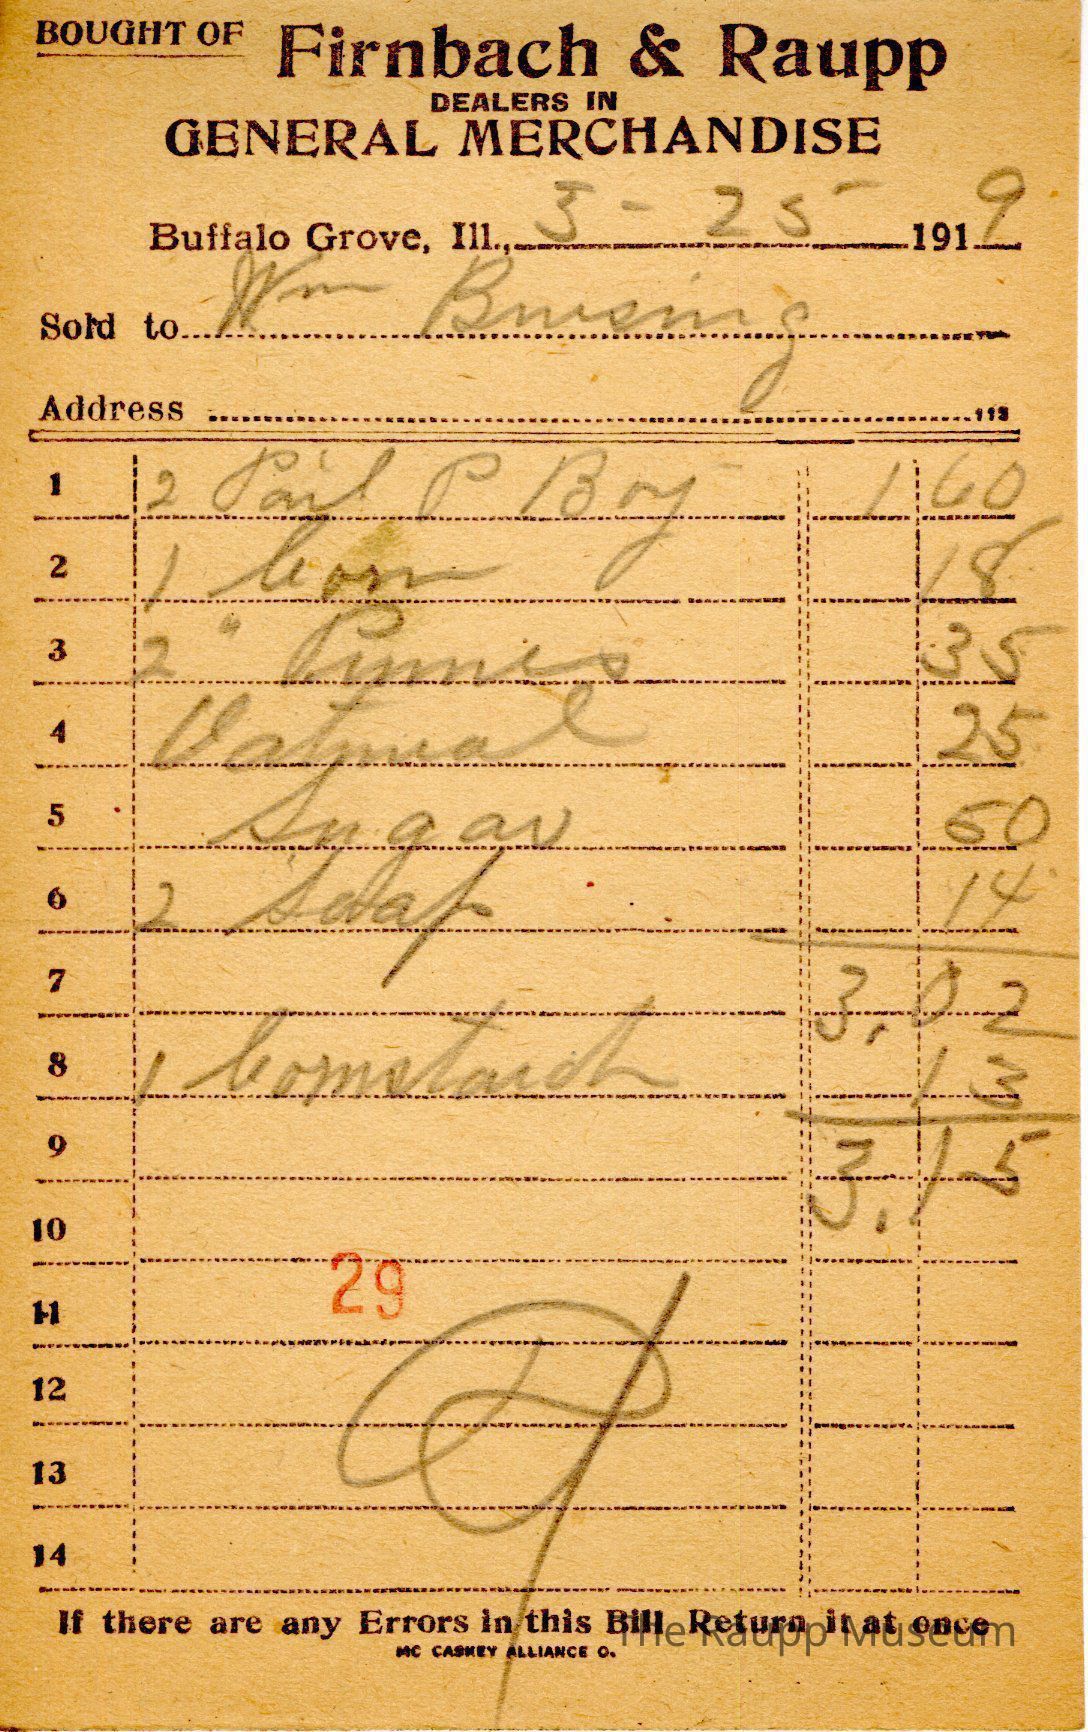 BOUGHT OF Firnbach & Raupp
DEALERS IN
GENERAL MERCHANDISE
Buffalo Grove, Ill., 3 - 25 - 1919
Sold to Wm Busing
Address
1 2 Pail P Boy 1 60
2 1 Corn 18
3 2 " Prunes 35
4 Oatmeal 25
5 Sugar 50
6 2 Soap 14
7 3.02
8 1 Cornstarch 13
9 3.15
10
29
11
12
13
14
If there are any Errors in this Bill Return it at once
The Raupp Museum
MC CASKEY ALLIANCE O.